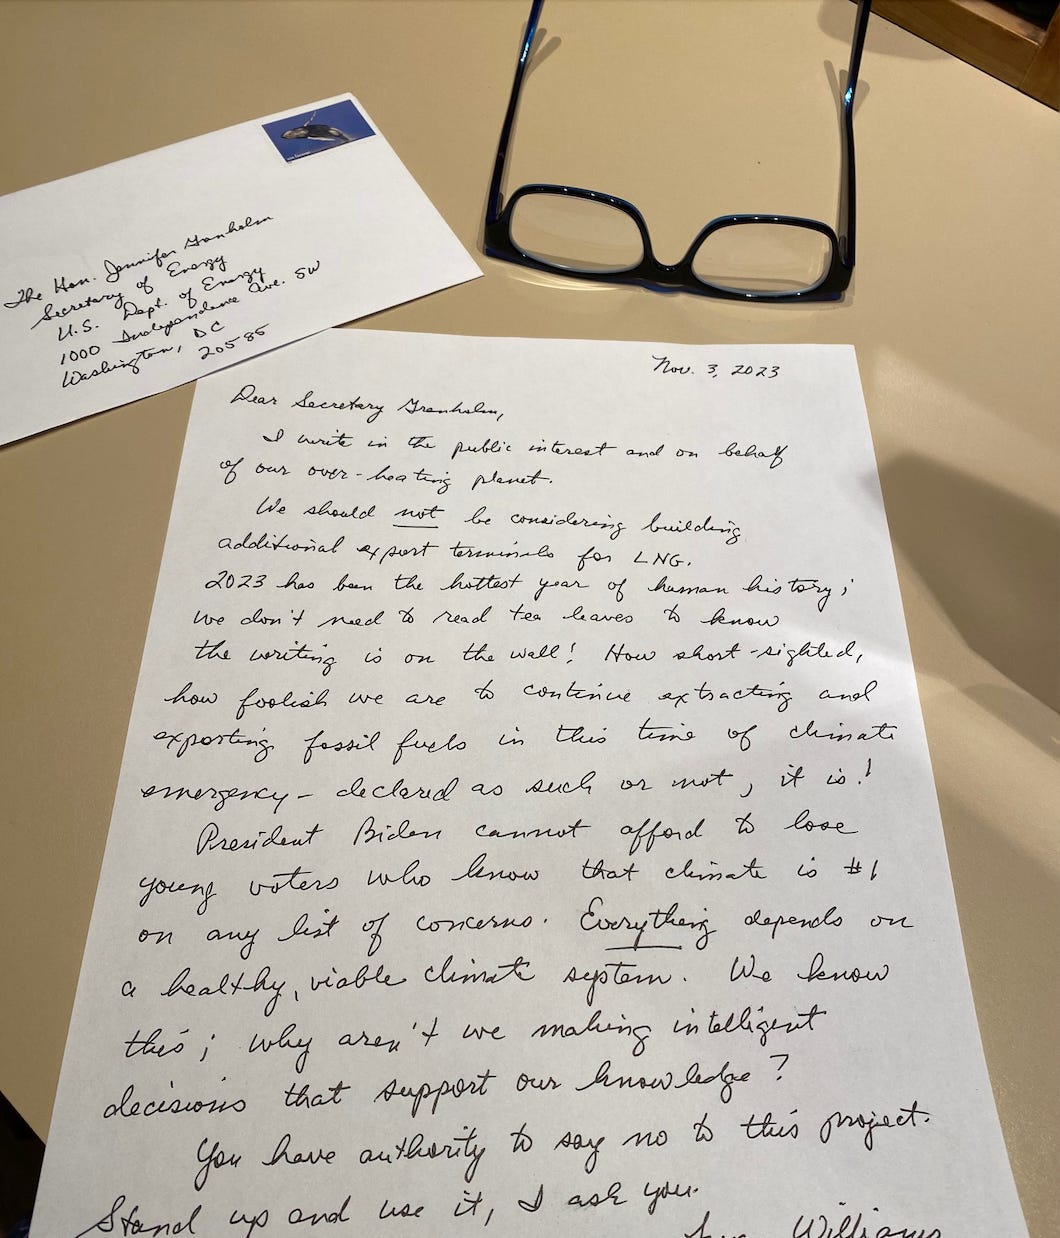 The Hon. Jennifer Granholm
Secretary of Energy
U.S. Dept. of Energy
1000 Independence Ave. SW
Washington, DC
20585
Nov. 3, 2023
Dear Secretary Granholm,
I write in the public interest and on behalf
of our over-heating planet.
We should not be considering building
additional export terminals for LNG.
2023 has been the hottest year of human history;
we don't need to read tea leaves to know
the writing is on the wall! How short-sighted,
how foolish we are to continue extracting and
exporting fossil fuels in this time of climate
emergency - declared as such or not, it is!
President Biden cannot afford to lose
young voters who know that climate is #1
on any list of concerns. Everything depends on
a healthy, viable climate system. We know
this; why aren't we making intelligent
decisions that support our knowledge?
You have authority to say no to this project.
Stand up and use it, I ask you.
Williams